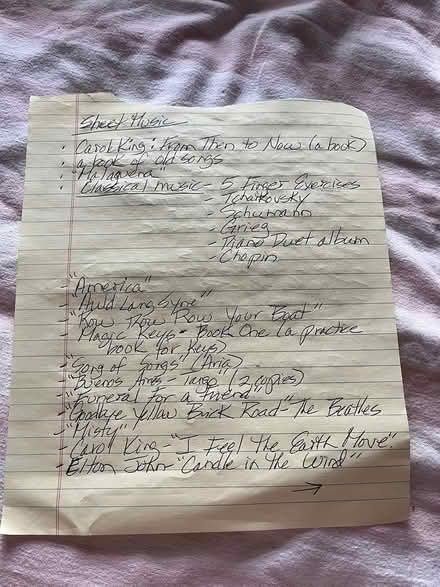 Sheet Music
· Carol King: From Then to Now (a book)
· a book of old songs
· "Malaguena"
· Classical music - 5 Finger Exercises
- Tchaikovsky
- Schumann
- Grieg
- Piano Duet album
- Chopin
- "America"
- "Auld Lang Syne"
- "Row Row Row Your Boat"
- Magic Keys - Book One (a practice
book for keys)
- "Song of Songs" (Aria)
- "Buenos Aires - Tango (2 copies)
- "Funeral for a Friend"
- "Goodbye Yellow Brick Road" - The Beatles
- "Misty"
- Caroll King - "I Feel the Earth Move".
- Elton John - "Candle in the Wind"
→